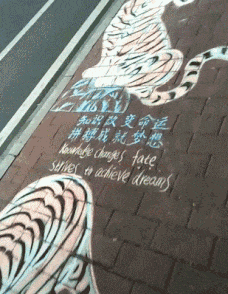 知识改变命运
拼搏成就梦想
knowledge changes fate
strives to achieve dreams